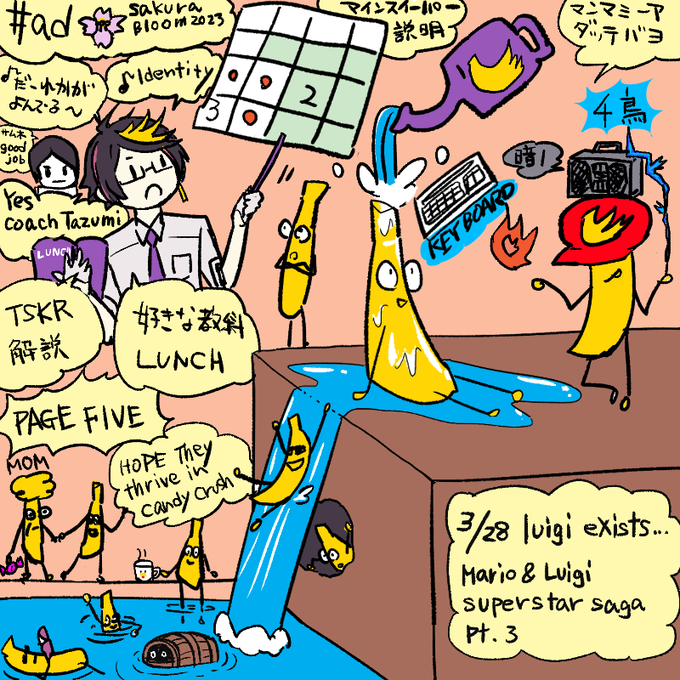 #ad
sakura
Bloom 2023
マインスイーパー
説明
マンマミーア
ダッテバヨ
♪
だーれかが
よんでる〜
♪Identity
3
2
4鳥
サムネ
good
job
暗！
KEYBOARD
Yes
coach Tazumi
LUNCH
TSKR
解説
好きな教科
LUNCH
PAGE FIVE
MOM
HOPE They
thrive in
candy crush
3/28 luigi exists...
Mario & Luigi
superstar saga
pt. 3